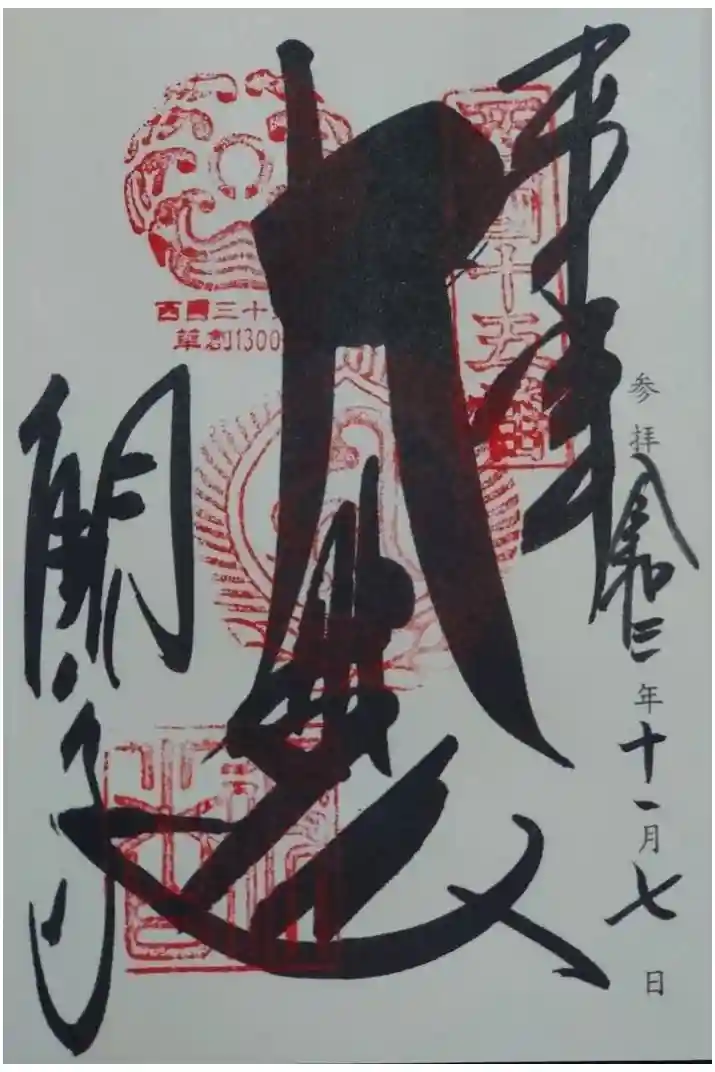 参拝 令和三年十一月七日
奉拝
西国十五番
大悲殿
西國三十
草創1300
観音寺